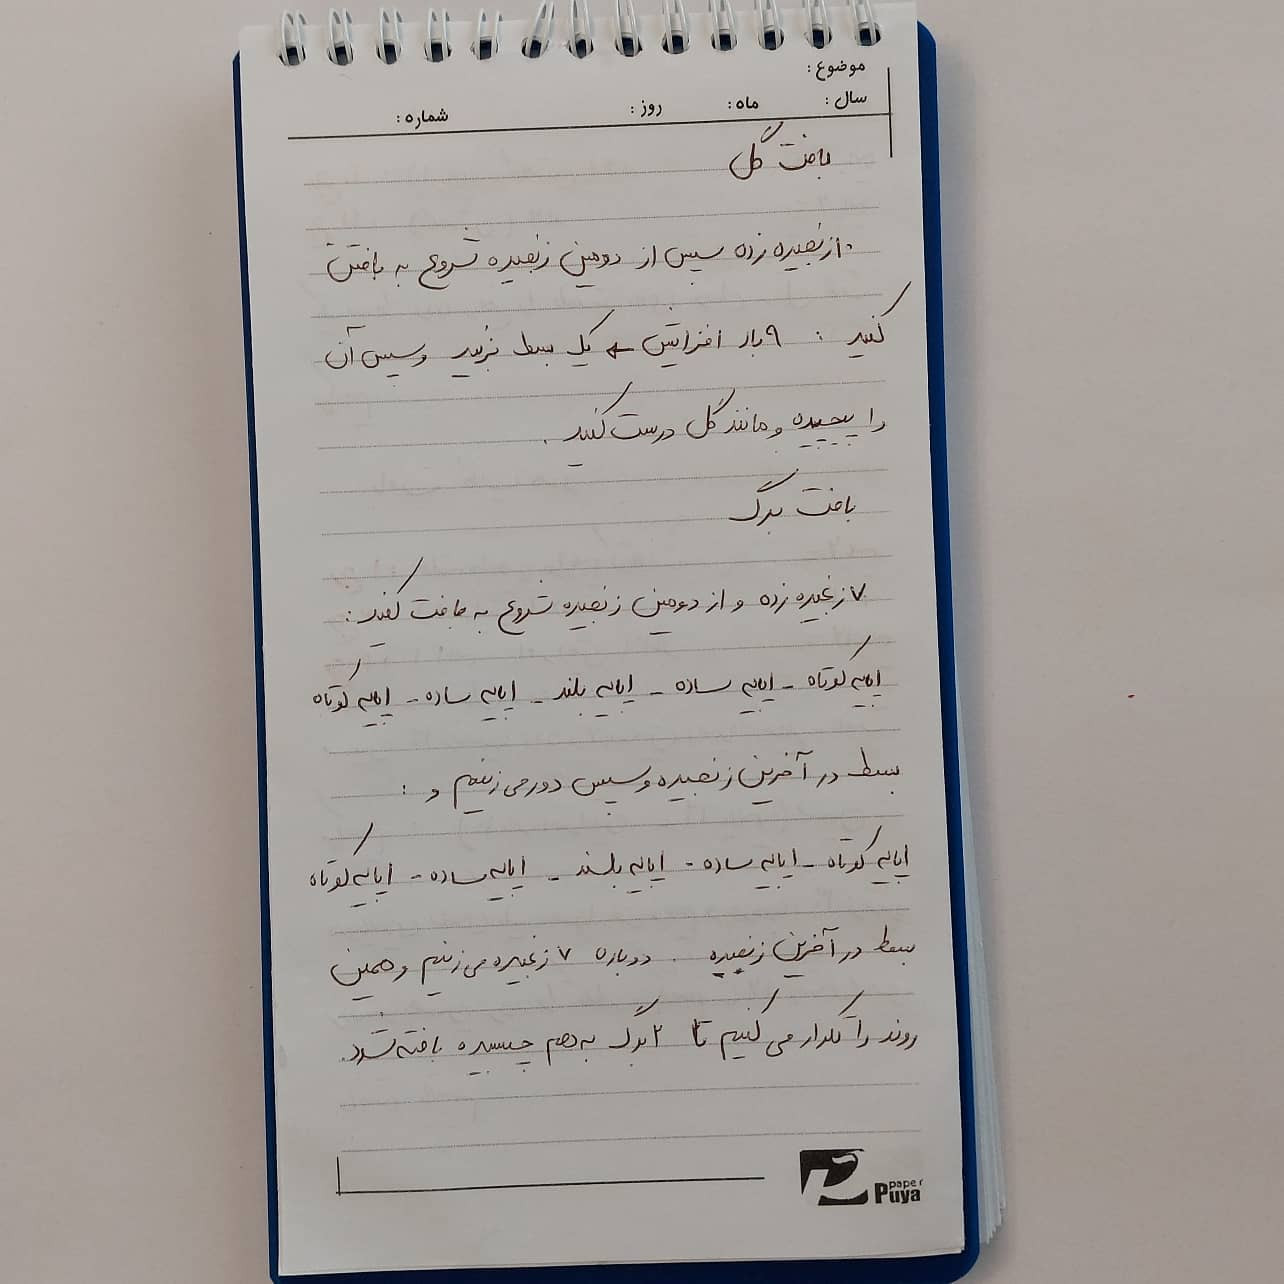 موضوع:
سال: ماه: روز: شماره:
بافت گل
۱۰ زنجیره زده سپس از دومین زنجیره شروع به بافتن
کنید: ۹ بار افزایش ← یک بسط بزنید و سپس آن
را پیچیده و مانند گل درست کنید.
بافت برگ
۷ زنجیره زده و از دومین زنجیره شروع به بافت کنید:
۱پایه کوتاه - ۱پایه ساده - ۱پایه بلند - ۱پایه ساده - ۱پایه کوتاه
بسط در آخرین زنجیره و سپس دور می زنیم و:
۱پایه کوتاه - ۱پایه ساده - ۱پایه بلند - ۱پایه ساده - ۱پایه کوتاه
بسط در آخرین زنجیره. دوباره ۷ زنجیره می زنیم و همین
روند را تکرار می کنیم تا ۲ برگ به هم چسبیده بافته شود.
paper
Puya